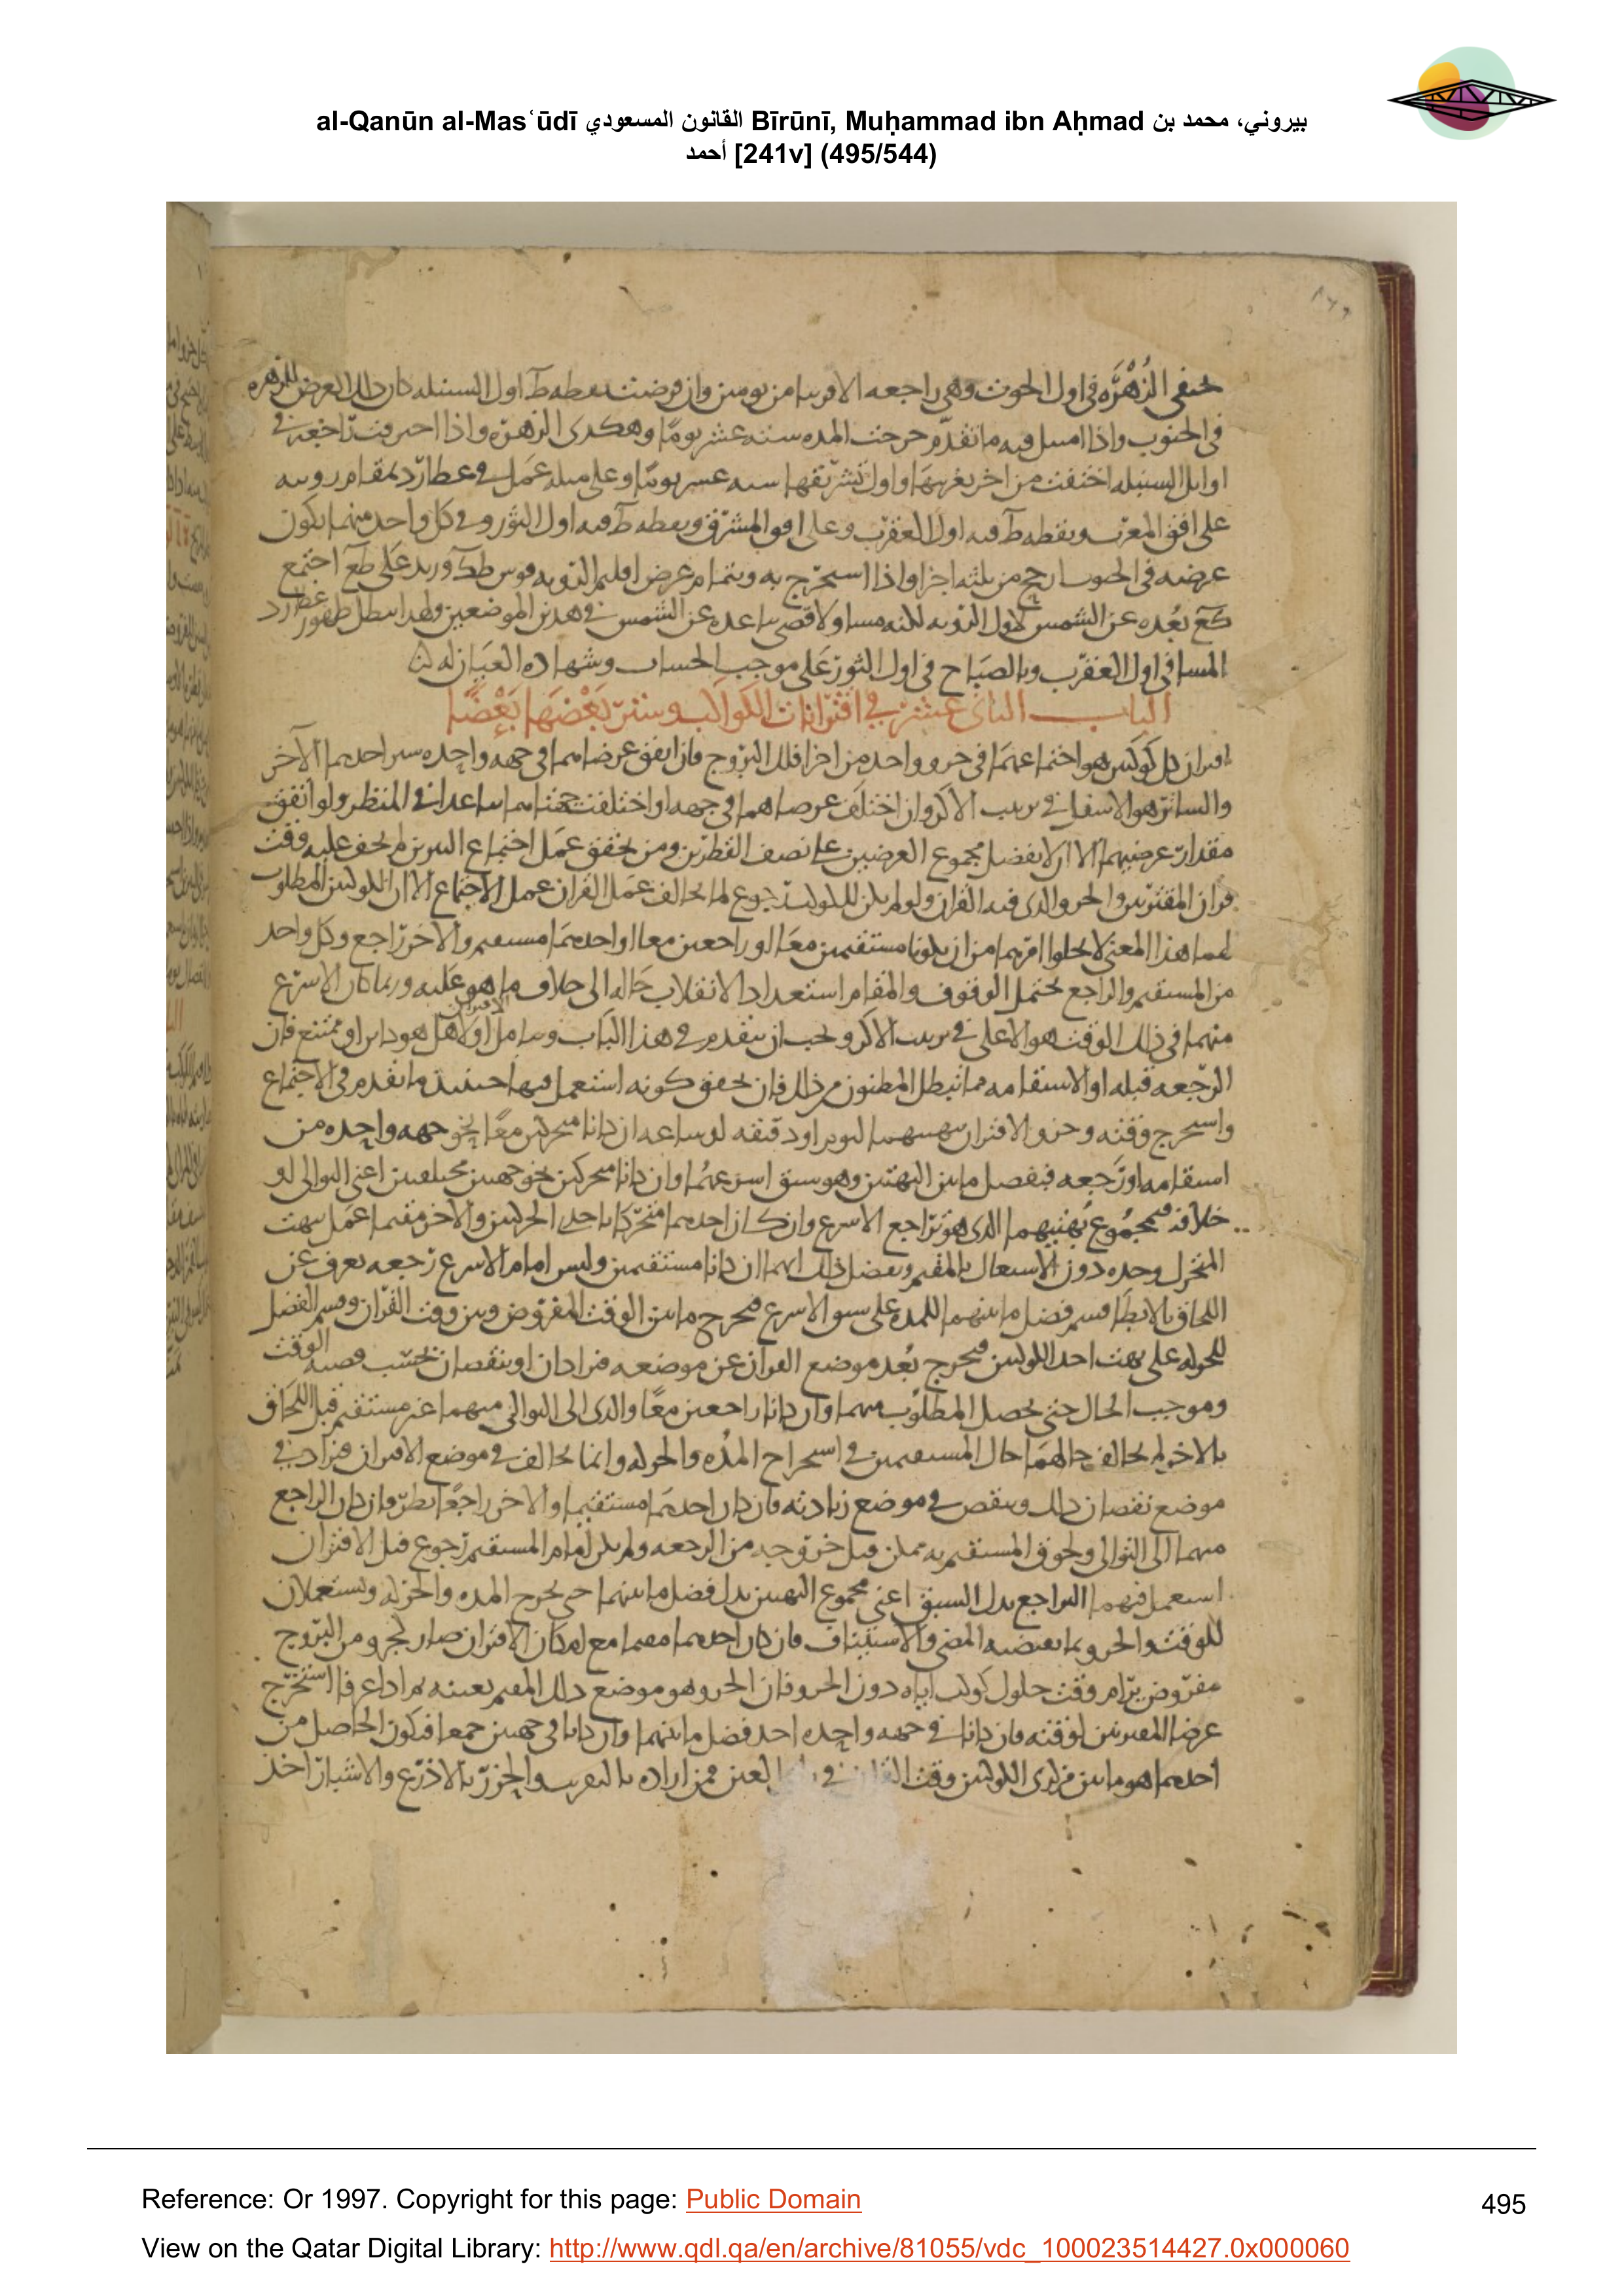 al-Qanūn al-Masʿūdī القانون المسعودي Bīrūnī, Muḥammad ibn Aḥmad بيروني، محمد بن
أحمد [241v] (495/544)
الزُهْرَه في اول الحوت وهي راجعه الا قريبا من يومين وان فرضت نقطه ط اول السنبله كان ذلك العرض للزهره
في الجنوب واذا امتثل فيه ما تقدّم خرجت المده سته عشر يومًا وهكذى الزهره واذا احترقت راجعه في
اوايل السنبله اختفت من اخر تغريبها واول تشريقها سته عشر يومًا وعلى مثله عمل في عطارد بمقام رويته
على افق المغرب ونقطه ط فيه اول العقرب وعلى افق المشرق ونقطه ط فيه اول الثور وفي كل واحد منهما يكون
عرضه في الجنوب من ثلثه اجزا واذا استخرج به وبتمام عرض اقليم الرويه قوس
بُعده عن الشمس لاول الرويه لكنه مساو لاقصى تباعده عن الشمس في هذين الموضعين ولهذا يبطل ظهور عطارد
المسا في اول العقرب وبالصباح في اول الثور على موجب الحساب وشهاده العيان له
الباب الثاني عشر في اقترانات الكواكب وستر بَعْضَها بَعْضًا
اقتران كل كوكبين هو اجتماعهما في جزو واحد من اجزا فلك البروج فان اتفق عرضاهما في جهه واحده ستر احدهما الآخر
والساتر هو الاسفل في ترتيب الاكر وان اختلف عرضاهما في جهه او اختلفت جهتاهما تباعدا في المنظر ولو اتفق
مقدار عرضيهما الا ان لا يفضل مجموع العرضين على نصف القطرين ومن تحقق عمل اجتماع النيرين لم يخف عليه وقت
قران المقترنين والجزو الذى فيه القران ولو لم يكن للكوكب رجوع لما خالف عمل القران عمل الاجتماع الا ان الكوكبين المطلوب
لهما هذا المعنى لا يخلوا امرهما من ان يكونا مستقيمين معا او راجعين معا او احدهما مستقيم والاخر راجع وكل واحد
من المستقيم والراجع يحتمل الوقوف والمقام استعدادا لانقلاب حاله الى خلاف ما هو عليه وربما كان الاسرع
منهما في ذلك الوقت هو الاعلى في ترتيب الاكر ويجب ان يتقدم في هذا الباب ويتامل اولا الاقتران هل هو كاين او ممتنع فان
الرجعه قبله او الاستقامه مما تبطل المظنون من ذلك فان تحقق كونه استعمل فيها حينيذ ما تقدم في الاجتماع
واستخرج وقته وجزو الاقتران ببهتيهما ليوم او دقيقه او ساعه ان كانا متحركين معًا نحو جهه واحده من
استقامه او رجعه فبفضل ما بين البهتين وهو سبق اسرعهما وان كانا متحركين نحو جهتين مختلفتين اعنى التوالى او
خلافه فبمجموع بهتيهما الذى هو تراجع الاسرع وان كان احدهما متحركا باحدى الحركتين والاخر مقيما عمل ببهت
المتحرك وحده دون الاشتغال بالمقيم وتفصيل ذلك انهما ان كانا مستقيمين وليس امام الاسرع رجعه تعرف عن
اللحاق بالابطا قسم فضل ما بينهما للمده على سبق الاسرع فيخرج ما بين الوقت المفروض وبين وقت القران وقسم الفضل
للحركه على بهت احد الكوكبين فيخرج بُعد موضع القران عن موضعه فيزادان او ينقصان بحسب قضيه الوقت
وموجب الحال حتى يحصل المطلوب منهما وان كانا راجعين معًا والذى الى التوالى منهما غير مستقيم قبل اللحاق
بالاخر لم يخالف حالهما حال المستقيمين في استخراج المده والحركه وانما يخالف في موضع الاقتران فيزاد في
موضع نقصان ذلك وينقص في موضع زيادته فان كان احدهما مستقيما والاخر راجعًا نظر وان كان الراجع
منهما الى التوالى ولحوق المستقيم به ممكن قبل خروجه من الرجعه ولم يكن امام المستقيم رجوع قبل الاقتران
استعمل فيهما التراجع بدل السبق اعنى مجموع البهتين بدل فضل ما بينهما حتى يخرج المده والحركه ويستعملان
للوقت والجزو بما يقتضيه المضى والاستيناف فان كان احدهما مقيما مع امكان الاقتران صار كجزو من البروج
مفروض يرام وقت حلول كوكب اياه دون الجزو فان الجزو هو موضع ذلك المقيم بعينه ثم اذا عرفا استخرج
عرضا المقترنين لوقته فان كانا في جهه واحده اخذ فضل ما بينهما وان كانا في جهتين جمعا فيكون الحاصل من
احدهما هو ما بين مركزى الكوكبين وقت القران في العين فمن اراده بالتقريب والحزر بالاذرع والاشبار اخذ
Reference: Or 1997. Copyright for this page: Public Domain
495
View on the Qatar Digital Library: http://www.qdl.qa/en/archive/81055/vdc_100023514427.0x000060